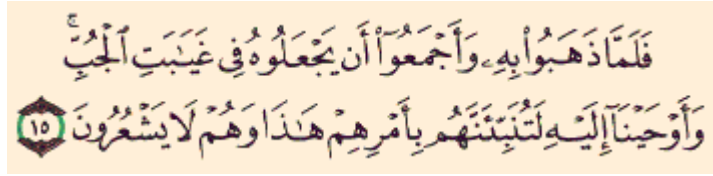 فَلَمَّا ذَهَبُوا۟ بِهِۦ وَأَجْمَعُوٓا۟ أَن يَجْعَلُوهُ فِى غَيَـٰبَتِ ٱلْجُبِّ ۚ
وَأَوْحَيْنَآ إِلَيْهِ لَتُنَبِّئَنَّهُم بِأَمْرِهِمْ هَـٰذَا وَهُمْ لَا يَشْعُرُونَ ١٥